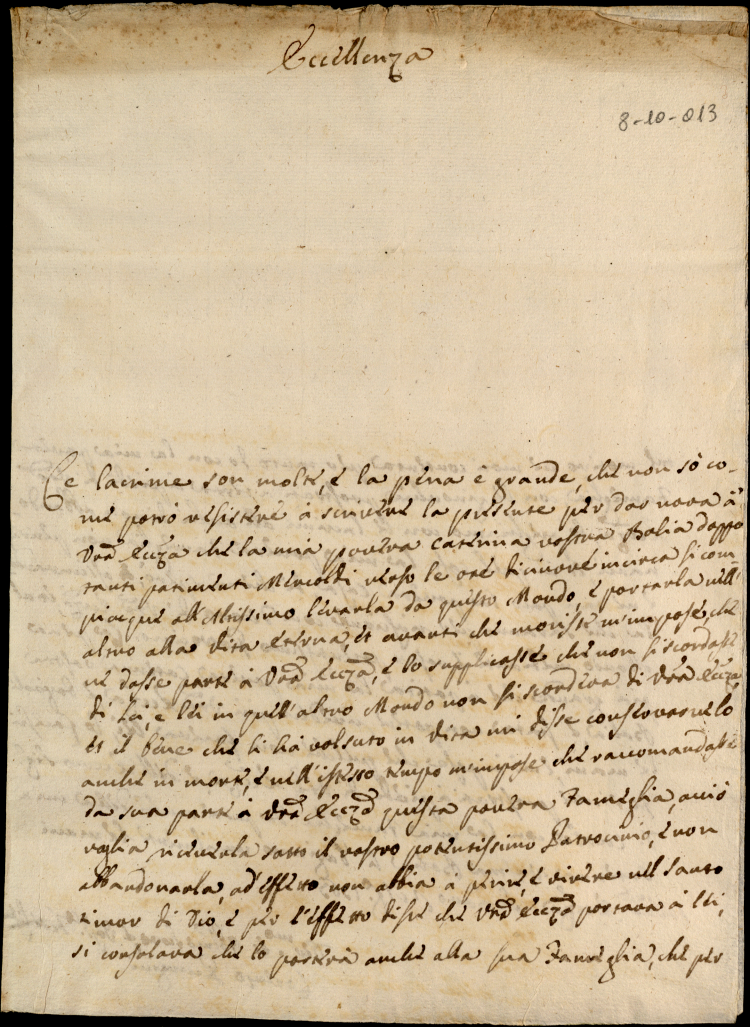 Eccellenza
8-10-013
Le lacrime son molte, e la pena è grande, che non sò co-
me potrò resistere à scrivere la presente per dar nova à
Vrã Eccz̃a che la mia povera Caterina vostra Balia doppo
tanti patimenti Mercoldi verso le ore dicinove incirca si com-
piacque all'Altissimo levarla da questo Mondo, e portarla nell'
altro alla vita eterna, et avanti che morisse m'impose, che
ne dasse parte à Vrã Eccz̃a, e lo supplicasse che non si scordasse
di Lei, e lei in quell'altro Mondo non si scordera di Vrã Eccz̃a,
et il bene che li hà volsuto in vita mi disse conservarvelo
anche in morte, e nell'istesso tempo m'impose che raccomandasse
da sua parte à Vrã Eccz̃a questa povera Fameglia, acciò
voglia riceverla sotto il vostro potentissimo Patrocinio, e non
abbandonarla, ad'effetto non abbia à perire, e vivere nel santo
timor di Dio, e per l'effetto disse che Vrã Eccz̃a portava à lei,
si consolava che lo porterà anche alla sua Fameglia, che per